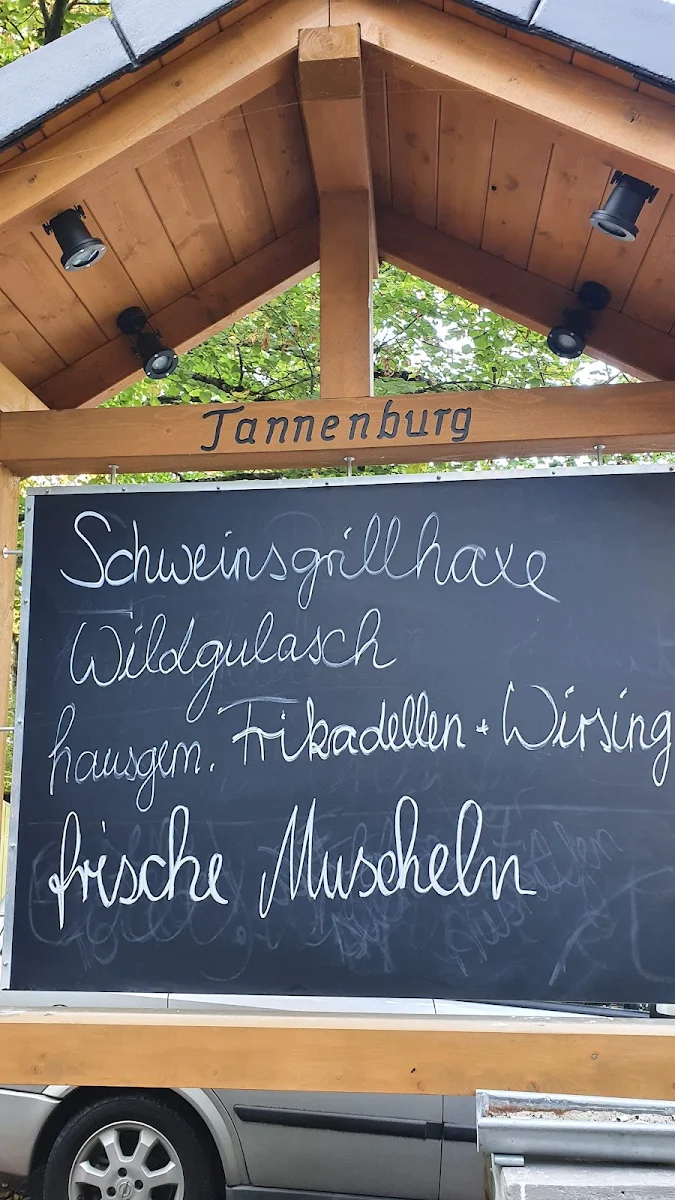 Tannenburg
Schweinsgrillhaxe
Wildgulasch
hausgem. Frikadellen + Wirsing
frische Muscheln